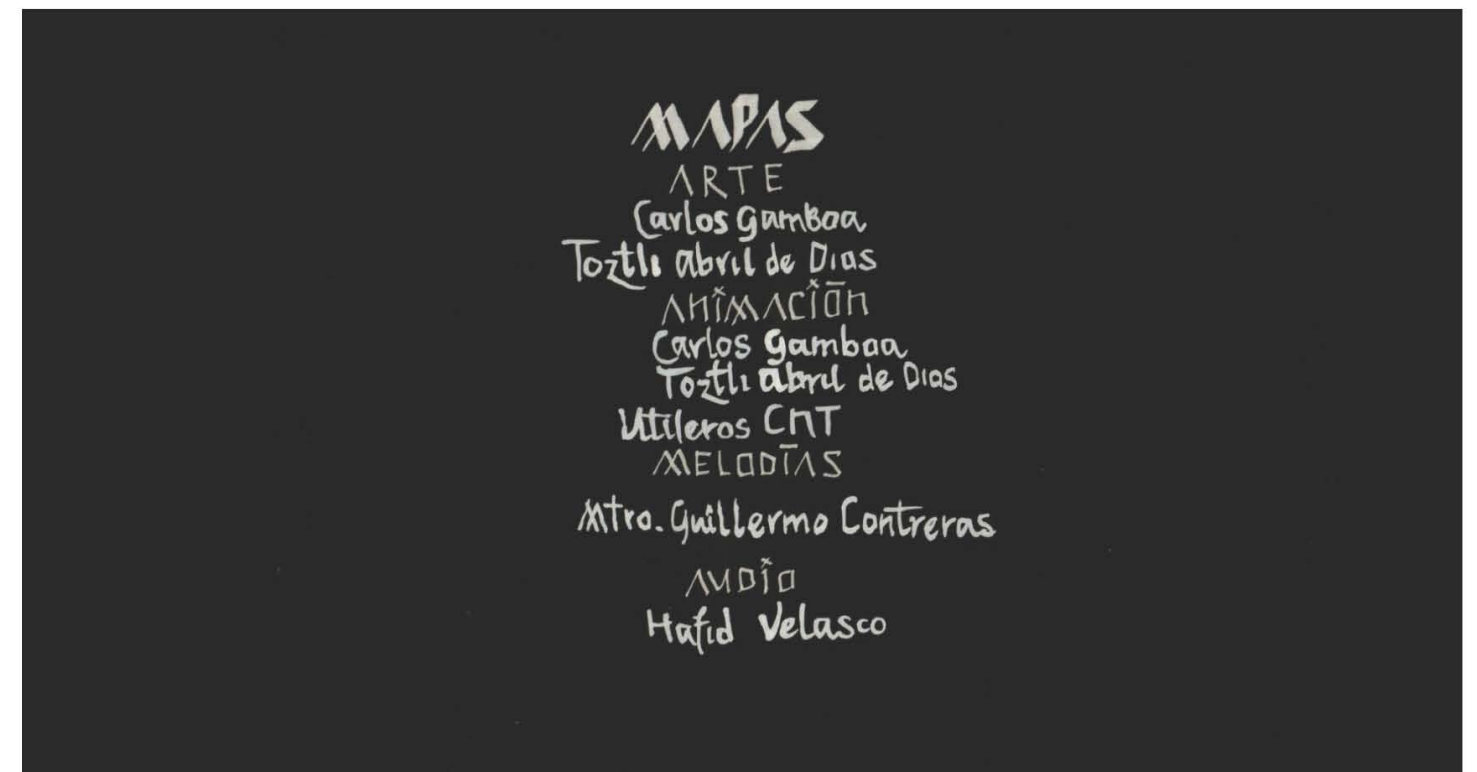 MAPAS
ARTE
Carlos Gamboa
Toztli abril de Dios
ANIMACIÓN
Carlos Gamboa
Toztli abril de Dios
Utileros CNT
MELODÍAS
Mtro. Guillermo Contreras
AUDIO
Hafid Velasco